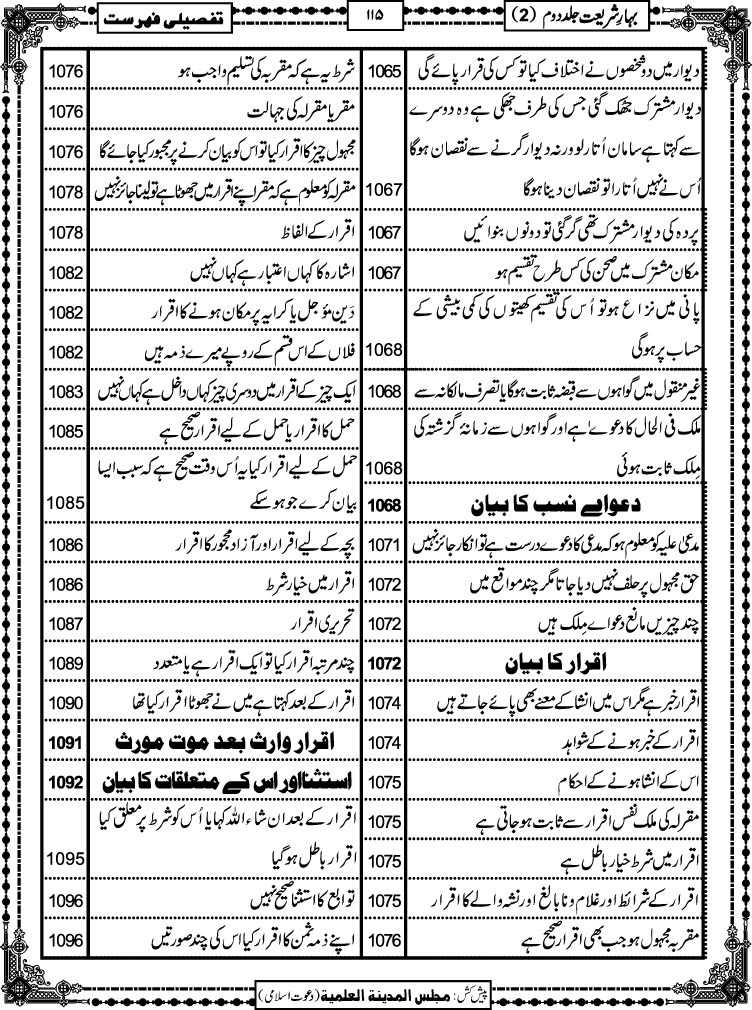 بہارِ شریعت جلد دوم (2)
۱۱۵
تفصیلی فہرست
دیوار میں دو شخصوں نے اختلاف کیا تو کس کی قرار پائے گی 1065
دیوار مشترک جھک گئی جس کی طرف جھکی ہے وہ دوسرے
سے کہتا ہے سامان اُتار لو ورنہ دیوار گرنے سے نقصان ہوگا
اُس نے نہیں اُتارا تو نقصان دینا ہوگا 1067
پردہ کی دیوار مشترک تھی گر گئی تو دونوں بنوائیں 1067
مکان مشترک میں صحن کی کس طرح تقسیم ہو 1067
پانی میں نزاع ہو تو اُس کی تقسیم کھیتوں کی کمی بیشی کے
حساب پر ہوگی 1068
غیر منقول میں گواہوں سے قبضہ ثابت ہوگا یا تصرف مالکانہ سے 1068
ملک فی الحال کا دعوےٰ ہے اور گواہوں سے زمانۂ گزشتہ کی
مِلک ثابت ہوئی 1068
دعوائے نسب کا بیان 1068
مدعیٰ علیہ کو معلوم ہو کہ مدعی کا دعوے درست ہے تو انکار جائز نہیں 1071
حق مجہول پر حلف نہیں دیا جاتا مگر چند مواقع میں 1072
چند چیزیں مانع دعوائے مِلک ہیں 1072
اقرار کا بیان 1072
اقرار خبر ہے مگر اس میں انشا کے معنے بھی پائے جاتے ہیں 1074
اقرار کے خبر ہونے کے شواہد 1074
اس کے انشا ہونے کے احکام 1075
مقرلہ کی ملک نفس اقرار سے ثابت ہو جاتی ہے 1075
اقرار میں شرط خیار باطل ہے 1075
اقرار کے شرائط اور غلام و نابالغ اور نشہ والے کا اقرار 1075
مقربہ مجہول ہو جب بھی اقرار صحیح ہے 1076
شرط یہ ہے کہ مقربہ کی تسلیم واجب ہو 1076
مقر یا مقرلہ کی جہالت 1076
مجہول چیز کا اقرار کیا تو اس کو بیان کرنے پر مجبور کیا جائے گا 1076
مقرلہ کو معلوم ہے کہ مقر اپنے اقرار میں جھوٹا ہے تو لینا جائز نہیں 1078
اقرار کے الفاظ 1078
اشارہ کا کہاں اعتبار ہے کہاں نہیں 1082
دَین مؤجل یا کرایہ پر مکان ہونے کا اقرار 1082
فلاں کے اس قسم کے روپے میرے ذمہ ہیں 1082
ایک چیز کے اقرار میں دوسری چیز کہاں داخل ہے کہاں نہیں 1083
حمل کا اقرار یا حمل کے لیے اقرار صحیح ہے 1085
حمل کے لیے اقرار کیا یہ اُس وقت صحیح ہے کہ سبب ایسا
بیان کرے جو ہو سکے 1085
بچہ کے لیے اقرار اور آزاد محجور کا اقرار 1086
اقرار میں خیار شرط 1086
تحریری اقرار 1087
چند مرتبہ اقرار کیا تو ایک اقرار ہے یا متعدد 1089
اقرار کے بعد کہتا ہے میں نے جھوٹا اقرار کیا تھا 1090
اقرار وارث بعد موت مورث 1091
استثنا اور اس کے متعلقات کا بیان 1092
اقرار کے بعد ان شاء اللہ کہا یا اُس کو شرط پر معلق کیا
اقرار باطل ہو گیا 1095
توابع کا استثنا صحیح نہیں 1096
اپنے ذمہ ثمن کا اقرار کیا اس کی چند صورتیں 1096
پیش کش: مجلس المدینة العلمیة (دعوت اسلامی)